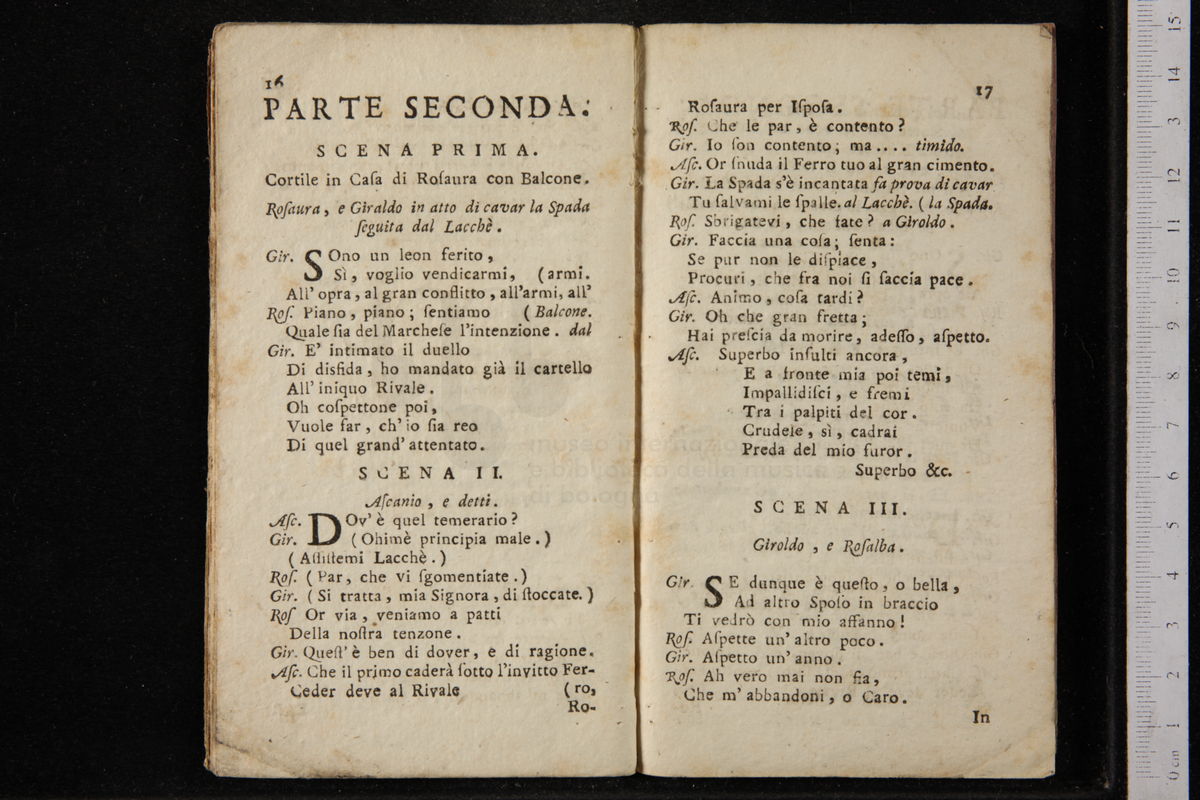 16
PARTE SECONDA.
SCENA PRIMA.
Cortile in Caſa di Roſaura con Balcone.
Roſaura, e Giraldo in atto di cavar la Spada
ſeguita dal Lacchè.
Gir. SOno un leon ferito,
Sì, voglio vendicarmi, (armi.
All' opra, al gran conflitto, all'armi, all'
Roſ. Piano, piano; ſentiamo (Balcone.
Quale ſia del Marcheſe l'intenzione. dal
Gir. E' intimato il duello
Di disfida, ho mandato già il cartello
All' iniquo Rivale.
Oh coſpettone poi,
Vuole far, ch' io ſia reo
Di quel grand' attentato.
SCENA II.
Aſcanio, e detti.
Aſc. DOv' è quel temerario?
Gir. (Ohimè principia male.)
(Aſſiſtemi Lacchè.)
Roſ. (Par, che vi ſgomentiate.)
Gir. (Si tratta, mia Signora, di ſtoccate.)
Roſ Or via, veniamo a patti
Della noſtra tenzone.
Gir. Queſt' è ben di dover, e di ragione.
Aſc. Che il primo caderà ſotto l'invitto Fer-
Ceder deve al Rivale (ro,
Ro-
17
Roſaura per Iſpoſa.
Roſ. Che le par, è contento?
Gir. Io ſon contento; ma.... timido.
Aſc. Or ſnuda il Ferro tuo al gran cimento.
Gir. La Spada s'è incantata fa prova di cavar
Tu ſalvami le ſpalle. al Lacchè. (la Spada.
Roſ. Sbrigatevi, che fate? a Giroldo.
Gir. Faccia una coſa; ſenta:
Se pur non le diſpiace,
Procuri, che fra noi ſi faccia pace.
Aſc. Animo, coſa tardi?
Gir. Oh che gran fretta;
Hai preſcia da morire, adeſſo, aſpetto.
Aſc. Superbo inſulti ancora,
E a fronte mia poi temi,
Impallidiſci, e fremi
Tra i palpiti del cor.
Crudele, sì, cadrai
Preda del mio furor.
Superbo &c.
SCENA III.
Giroldo, e Roſalba.
Gir. SE dunque è queſto, o bella,
Ad altro Spoſo in braccio
Ti vedrò con mio affanno!
Roſ. Aſpette un' altro poco.
Gir. Aſpetto un' anno.
Roſ. Ah vero mai non fia,
Che m' abbandoni, o Caro.
In
museo internazio
e biblioteca della musica
di bologna
0 cm 1 2 3 4 5 6 7 8 9 10 11 12 13 14 15